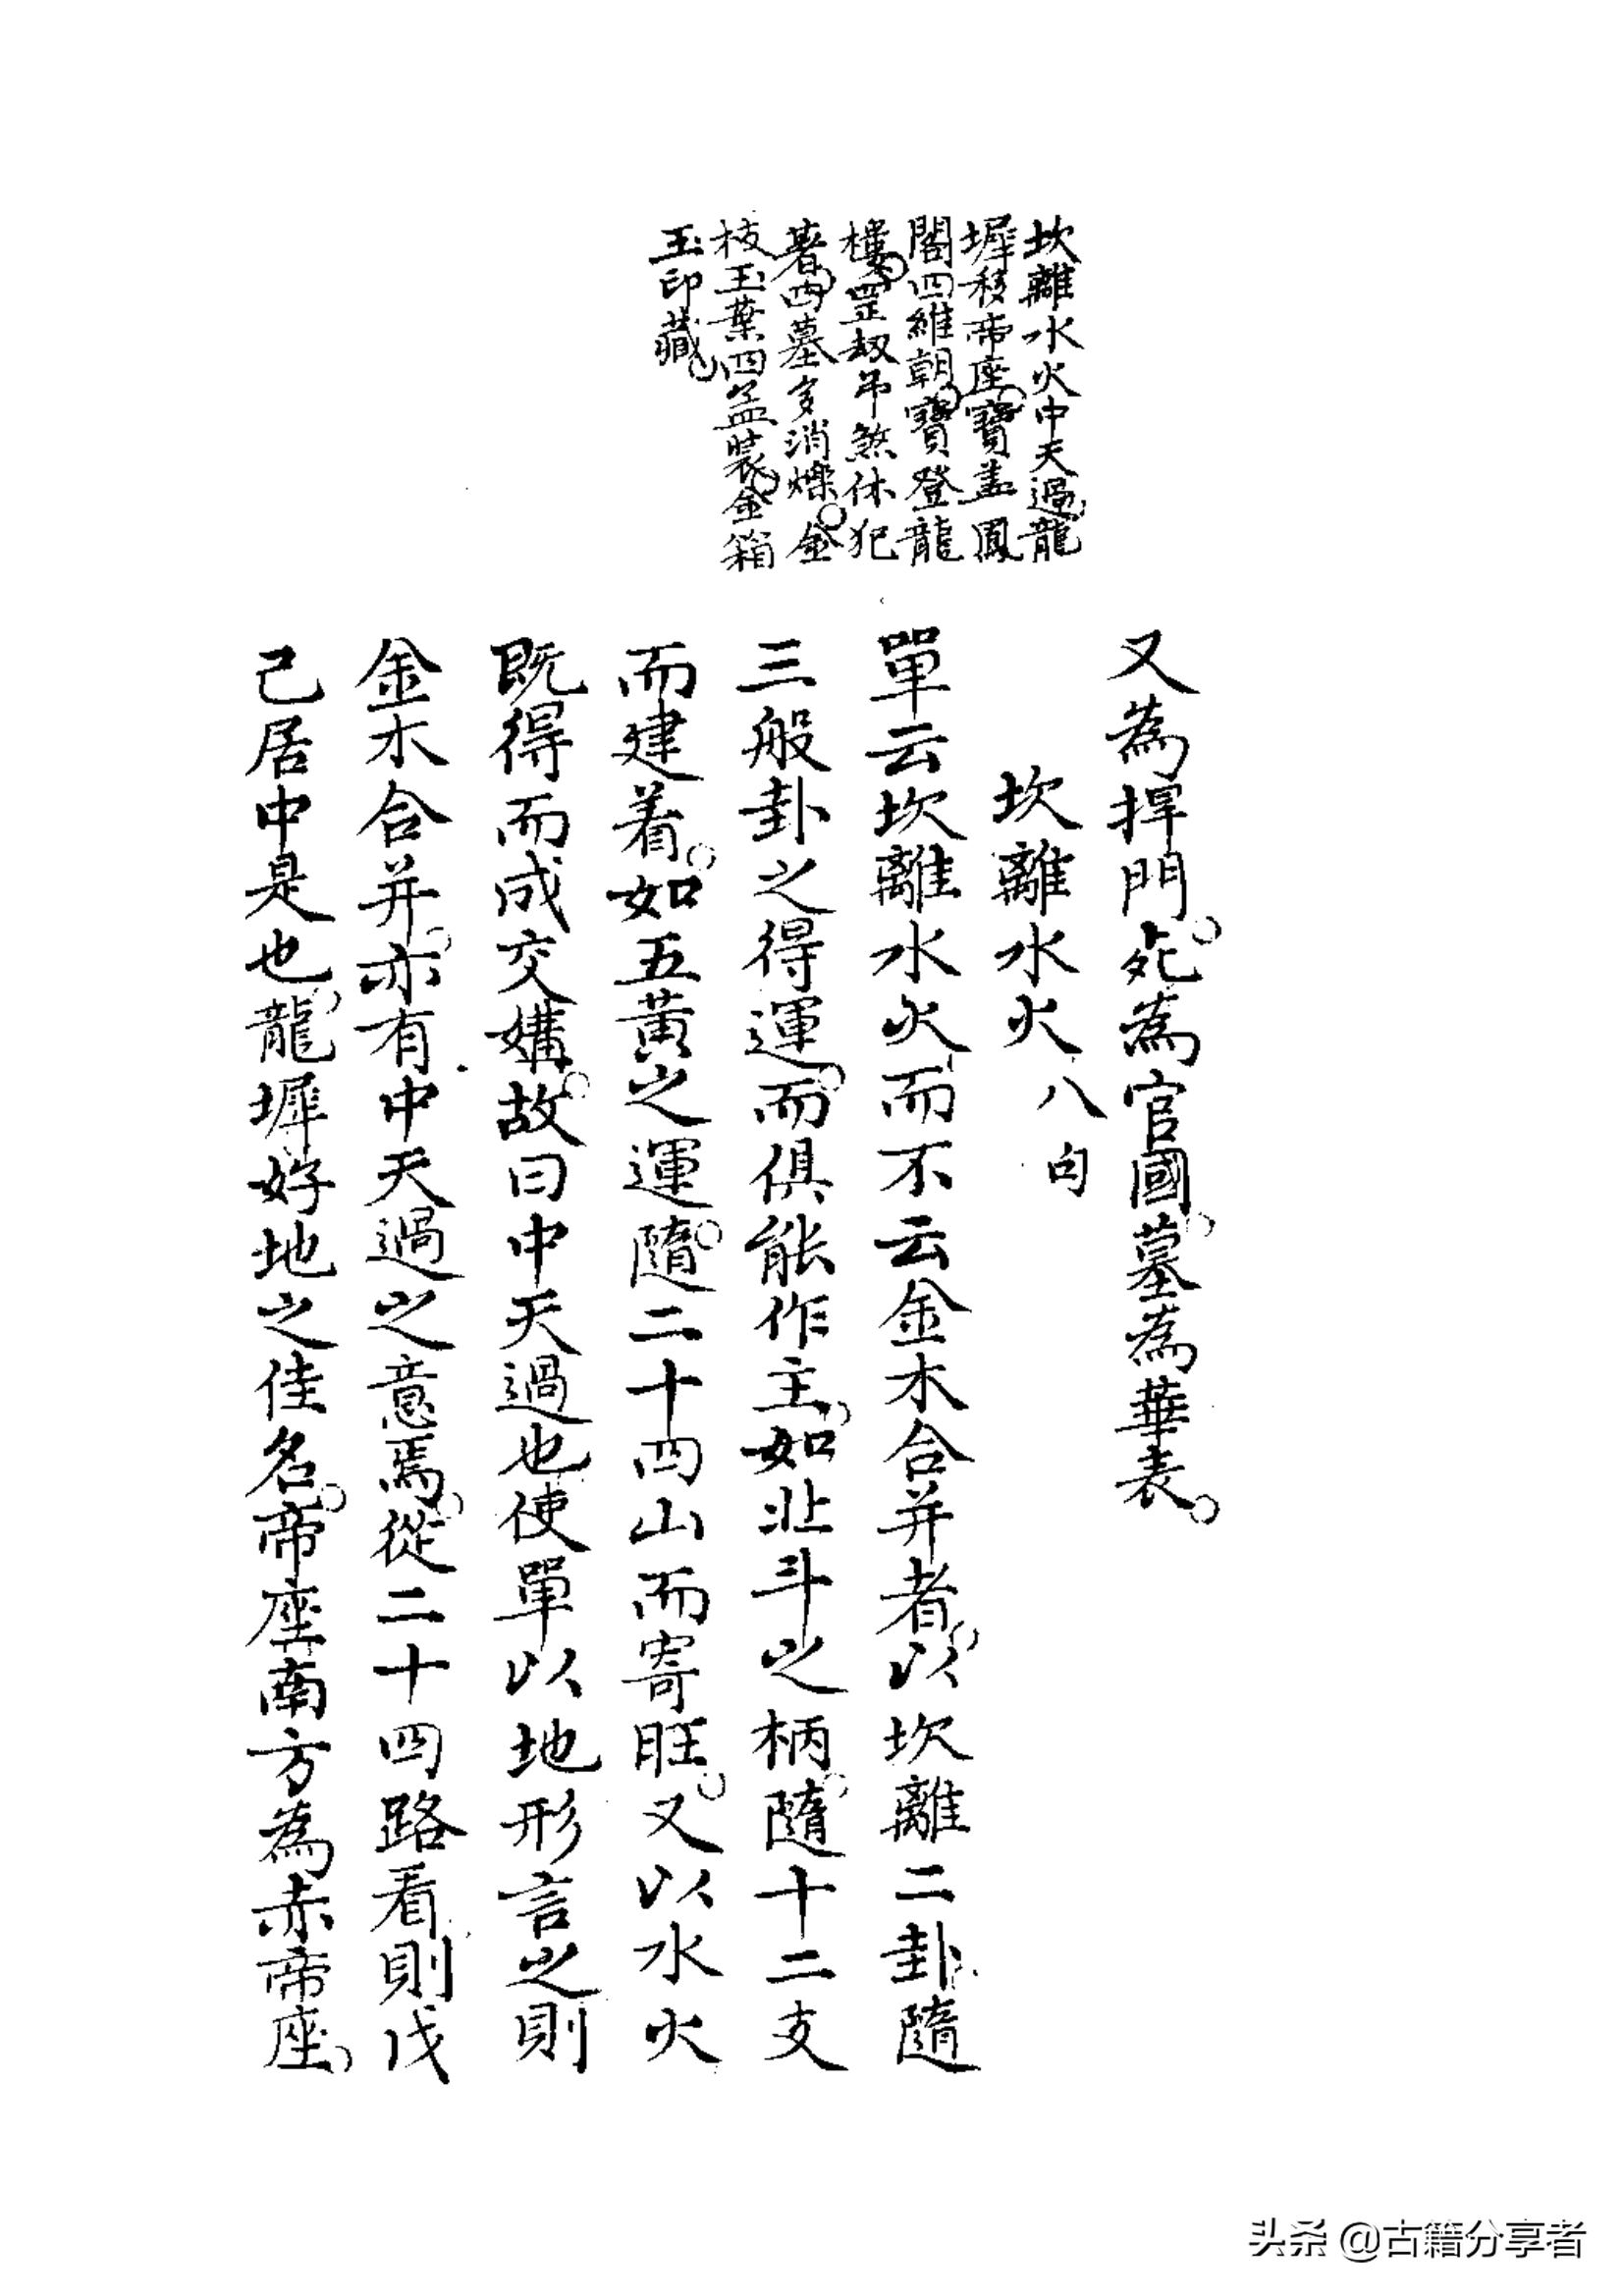 坎離水火中天過龍
墀移帝座寶盖鳳
閣四維朝寶登龍
樓罡劫吊煞休犯
著四墓多消爍金
枝玉葉四孟裝金箱
玉印藏
又為捍門死為官國墓為華表
坎離水火八句
單云坎離水火而不云金木合并者以坎離二卦隨
三般卦之得運而俱能作主如北斗之柄隨十二支
而建着如五黃之運隨二十四山而寄旺又以水火
既得而成交媾故曰中天過也使單以地形言之則
金木合并亦有中天過之意焉從二十四路看則戊
己居中是也龍墀好地之佳名帝座南方為赤帝座
头条 @古籍分享者